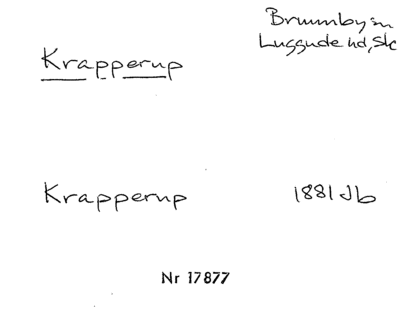 Brunnby sn
Luggude hd, Sk
Krapperup
Krapperup
1881 Jb
Nr 17877